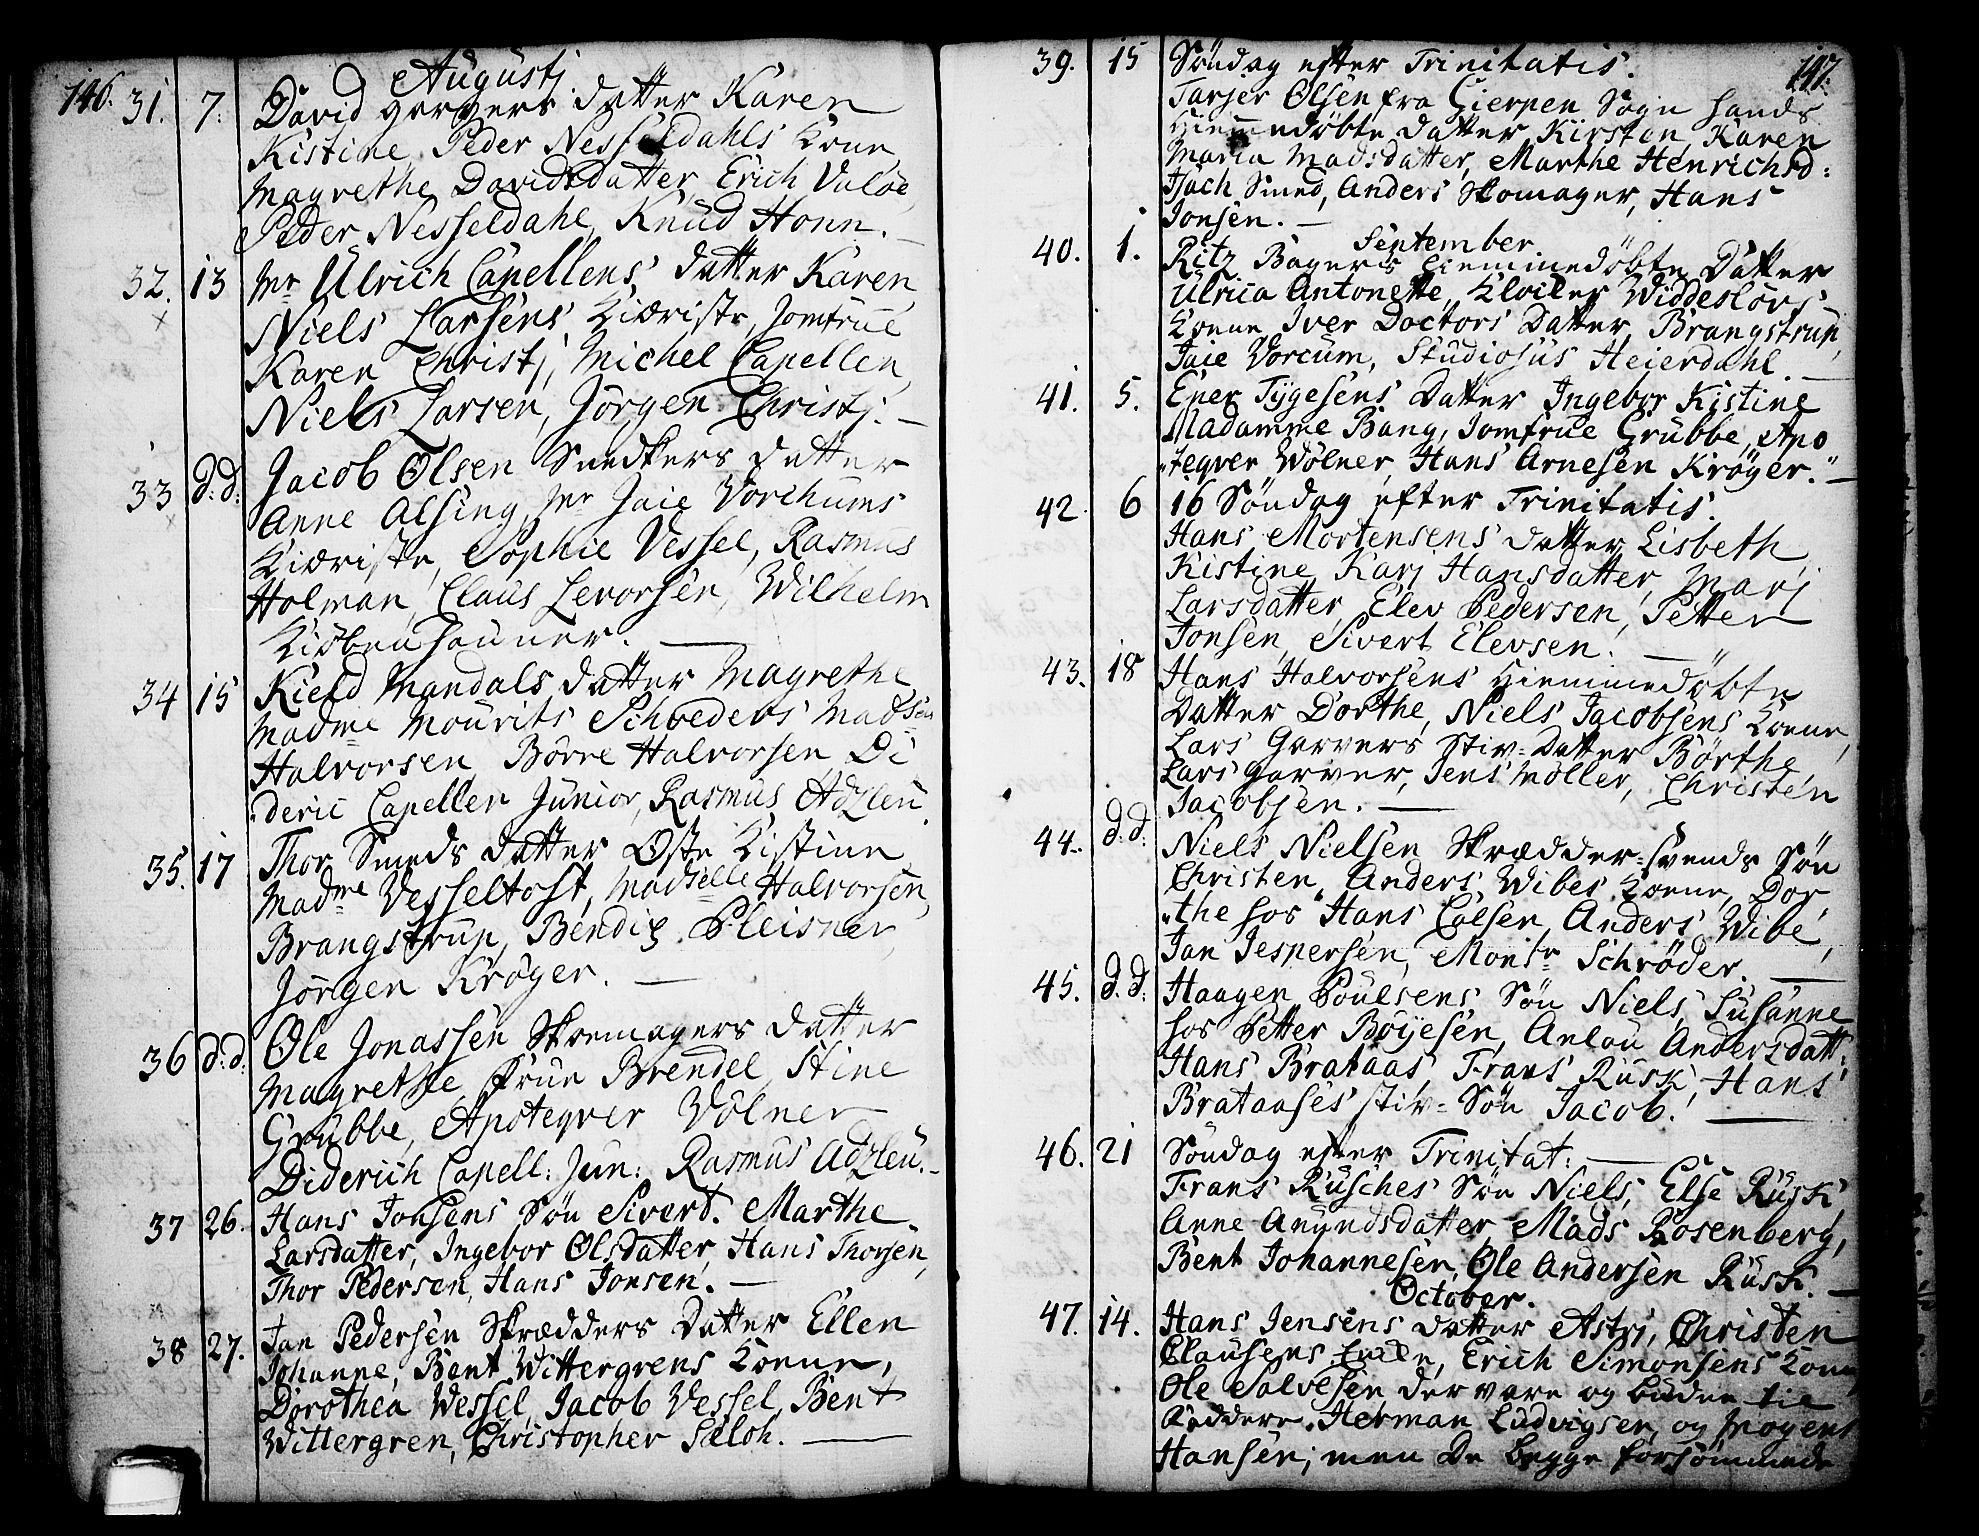 146.
Augustj
31. 7. David garvers datter Karen
Kistine, Peder Nesseldahls Kone,
Magrethe Davidsdatter, Erich Valøe,
Peder Nesseldahl, Knud Honn. —
32. 13 Mr Ulrich Capellens datter Karen,
Niels Larsens Kiæriste, Jomfrue
Karen Christj, Michel Capellen,
Niels Larsen, Jörgen Christj. —
33 d: d: Jacob Olsen Snedkers datter
Anne Alsing, Mr Jaie Vorchums
Kiæriste, Sophie Vessel, Rasmus
Holman, Claus Levorsen, Wilhelm
Kiøbenhauner. —
34 15 Kield Mandals datter Magrethe
Madme Mourits Schrøders Madsell
Halvorsen Börre Halvorsen Di
deric Capellen Junior, Rasmus Adzleu.
35. 17 Thor Smeds datter Oste Kistine
Madme Vesseltoft, Madselle Halvorsen,
Brangstrup, Bendix Pleisner,
Jörgen Kröger. —
36 d: d: Ole Jonassen Skoemagers datter
Magrethe, Frue Brendel, Stine
Grubbe, Apoteqver Völner
Diderich Capell: Jun: Rasmus Adzleu. —
37 26. Hans Jonsens Sön Sivert. Marthe
Larsdatter, Ingebor Olsdatter, Hans Thorsen,
Thor Pedersen, Hans Jonsen. —
38 27. Jan Pedersen Skrædders Datter Ellen
Johanne, Bent Wittergrens Koene,
Dorothea Wessel, Jacob Vessel, Bent
Wittergren, Christopher Seloh. —
147.
39. 15 Söndag efter Trinitatis.
Tarjer Olsen fra Gierpen Sogn hands
Hiemmedöbte Datter Kirsten, Karen
Maria Madsdatter, Marthe Henrichsd:
Isach Smed, Anders Skomager, Hans
Jonsen. —
September
40. 1. Ritz Bagers hiemmedöbte Datter
Ulrica Antonette, Widdesløvs
Koene, Iver Doctors Datter, Brangstrup,
Jaie Vorcum, Studiosus Heierdahl. —
41. 5. Ener Tygesens Datter Ingebor Kistine
Madamme Bang, Jomfrue Grubbe, Apo
teqver Völner, Hans Arnesen Kröger. —
42. 6 16 Söndag efter Trinitatis.
Hans Mortensens datter Lisbeth
Kistine, Karj Hansdatter, Marj
Larsdatter, Elev Pedersen, Petter
Jonsen, Sivert Elevsen. —
43. 18 Hans Halvorsens Hiemmedöbte
Datter Dorthe, Niels Jacobsens Koene,
Lars Garvers Stiv-Datter Börthe,
Lars garver, Jens Möller, Christen
Jacobsen. —
44. d: d: Niels Nielsen Skrædder-svends Sön
Christen, Anders Wibes Koene, Dor
the hos Hans Colsen, Anders Wibe,
Jan Jespersen, Monsr Schröder. —
45. d. d: Haagen Poulsens Sön Niels, Susanne
hos Petter Böyesen, Anlou Andersdatt:
Hans Brataas, Frans Rusk, Hans
Brataases Stiv-Sön Jacob. —
46. 21 Söndag efter Trinitat: —
Frans Rusches Sön Niels, Else Rusk,
Anne Amundsdatter, Mads Rosenberg,
Bent Johannesen, Ole Andersen Rusk. —
October.
47. 14. Hans Jensens datter Astrj, Christen
Clausens , Erich Simonsens Kone,
Ole Salvesen der vare og budne til
Faddere. Herman Ludvigsen og Mogens
Hansen; men De begge forsömmede